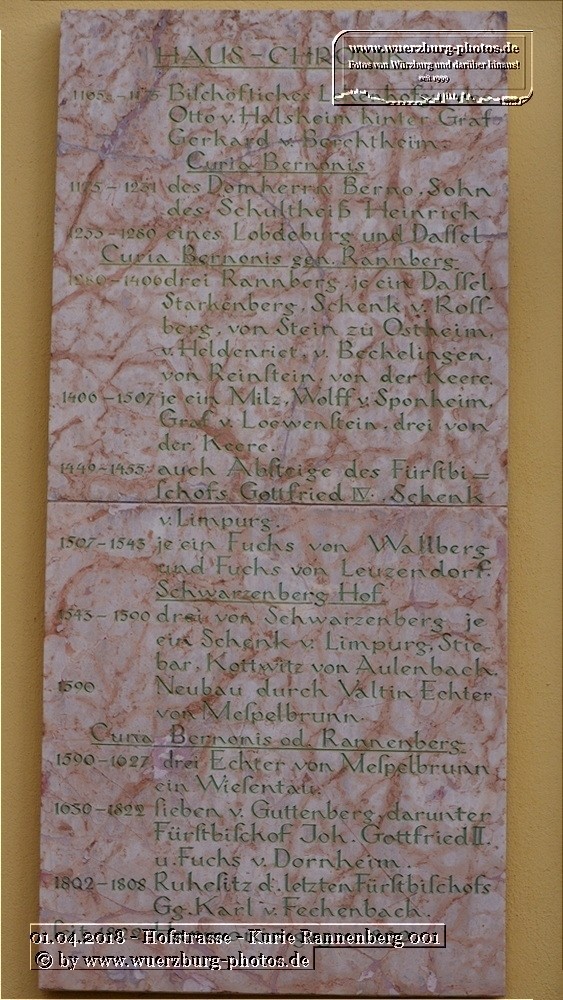 HAUS-CHRO
www.wuerzburg-photos.de
Fotos von Würzburg und darüber hinaus!
seit 1999
Bischöfliches
Otto v. Halsheim hinter Graf
Gerhard v. Berchtheim.
Curia Bernonis
1175-1251 des Domherrn Berno, Sohn
des Schultheiß Heinrich.
1253-1280 eines Lobdeburg und Dassel.
Curia Bernonis gen. Rannberg
1280-1406 drei Rannberg, je ein Dassel,
Starkenberg, Schenk v. Roſſ-
berg, von Stein zu Ostheim,
v. Heldenriet, v. Bechelingen,
von Reinſtein, von der Keere.
1406-1507 je ein Milz, Wolff v. Sponheim,
Graf v. Loewenſtein, drei von
der Keere.
1446-1455 auch Abſteige des Fürſtbi=
ſchofs Gottfried IV., Schenk
v. Limpurg.
1507-1543 je ein Fuchs von Wallberg
und Fuchs von Leuzendorf.
Schwarzenberg Hof
1543-1590 drei von Schwarzenberg, je
ein Schenk v. Limpurg, Stie-
bar, Kottwitz von Aulenbach.
1590 Neubau durch Valtin Echter
von Meſpelbrunn.
Curia Bernonis od. Rannenberg
1590-1627 drei Echter von Meſpelbrunn
ein Wieſentau.
1630-1822 ſieben v. Guttenberg, darunter
Fürſtbiſchof Joh. Gottfried II.
u. Fuchs v. Dornheim.
1802-1808 Ruheſitz d. letzten Fürſtbiſchofs
Gg. Karl v. Fechenbach.
01.04.2018 - Hofstrasse - Kurie Rannenberg 001
© by www.wuerzburg-photos.de